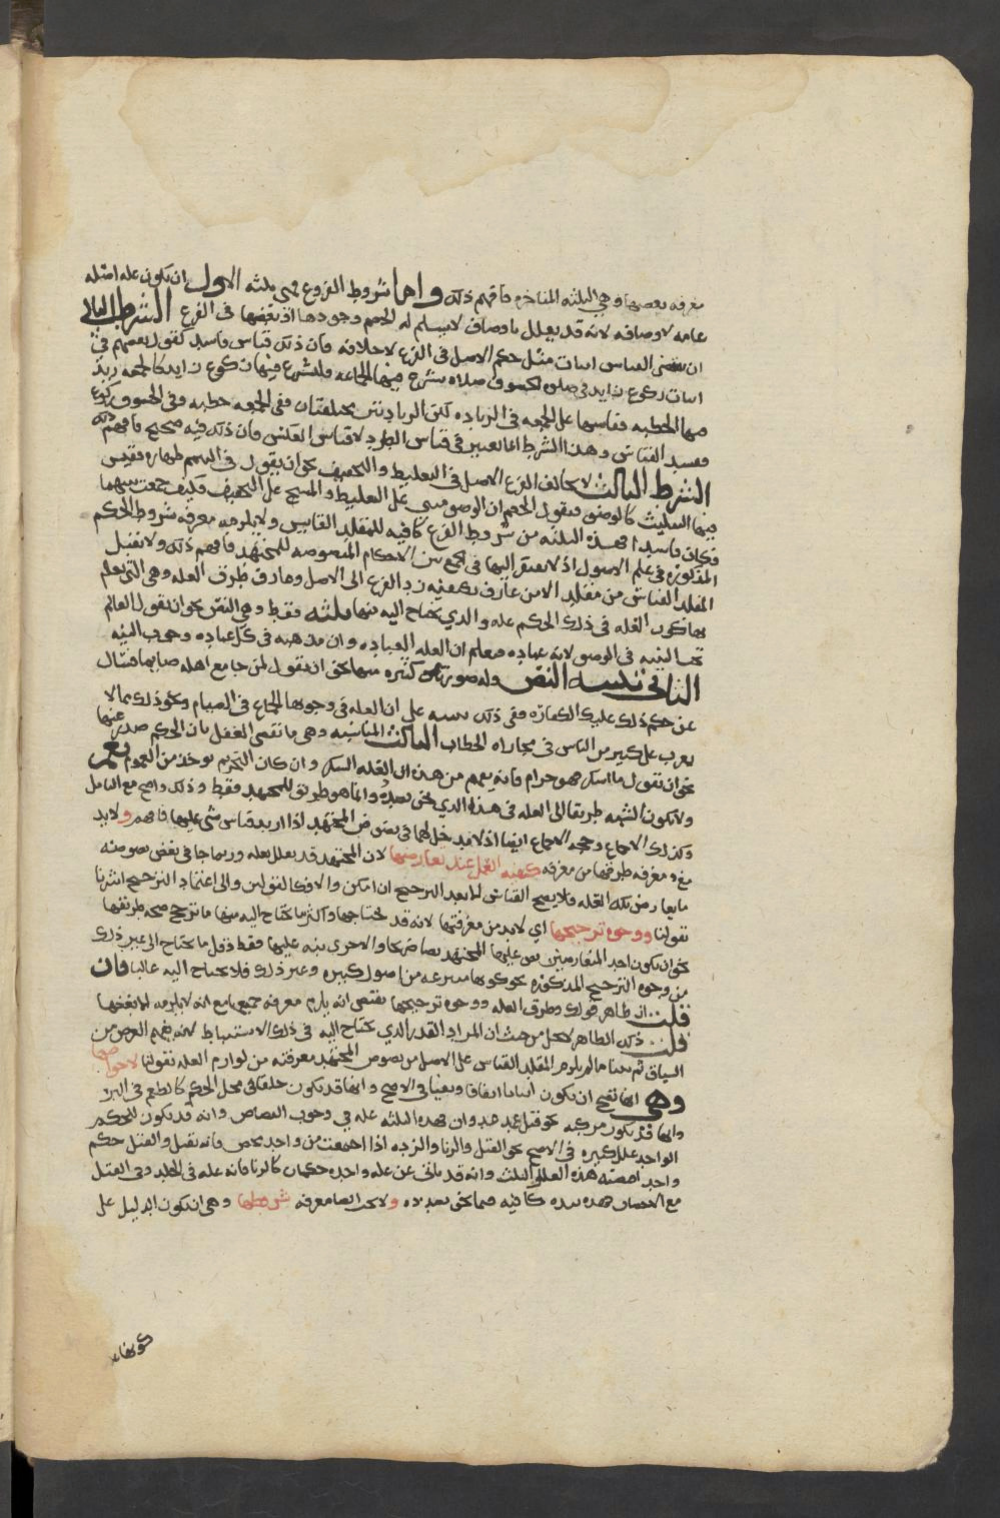 معرفه بعضها وهي الثلثه المتاخره فافهم ذلك واما شروط الفروع فهي ثلثه الاول ان تكون عله اصله
عامه لاوصافه لانه قد يعلل باوصاف لا يسلم له الخصم وجودها او بعضها في الفرع الشرط الثاني
ان يقتضي القياس اثبات مثل حكم الاصل في الفرع لا خلافه فان ذلك قياس فاسد كقول بعضهم في
اثبات ركوع زايد في صلوه الكسوف صلاه يشرع فيها الجماعه فليشرع فيها ركوع زايد كالجمعه زيد
فيها الخطبه فقاسها على الجمعه في الزياده لكن الزيادتين مختلفتان ففي الجمعه خطبه وفي الكسوف ركوع
ففسد القياس وهذا الشرط انما يعتبر في قياس الطرد لا قياس العكس فان ذلك فيه صحيح فافهم ذلك
الشرط الثالث لا يخالف الفرع الاصل في التغليظ والتخفيف نحو ان يقول في التيمم طهاره فيسن
فيها التثليث كالوضو فيقول الخصم ان الوضو مبني على التغليظ والمسح على التخفيف فكيف جمعت بينهما
فكان فاسدا فهذه الثلثه من شروط الفرع كافيه للمقلد القايس ولا يلزمه معرفه شروط الحكم
المذكوره في علم الاصول اذ لا يفتقر اليها في الجمع بين الاحكام المنصوصه للمجتهد فافهم ذلك ولا يقبل
المقلد القياس من مقلد الا من عارف بكيفيه رد الفرع الى الاصل وعارف طرق العله وهي التي يعلم
بها كون العله في ذلك الحكم عله والذي يحتاج اليه منها ثلثه فقط وهي النص نحو ان يقول العالم
تجب النيه في الوضو لانه عباده فيعلم ان العله العباده وان مذهبه في كل عباده وجوب النيه
الثاني تنبيه النص وله صور كثيره منها نحو ان يقول لمن جامع اهله صايما فسال
عن حكم ذلك عليك الكفاره ففي ذلك تنبيه على ان العله في وجوبها الجماع في الصيام ونحو ذلك مما لا
يعزب على كثير من الناس في مجاراه الخطاب الثالث المناسبه وهي ما يقضي العقل بان الحكم صدر عنها
نحو ان يقول ما اسكر فهو حرام فانه يفهم من هذا ان العله السكر وان كان التحريم يوخذ من العموم نعم
ولا يكون الشبه طريقا الى العله في هذا الذي نحن بصدده وانما هو طريق للمجتهد فقط وذلك واضح مع التامل
وكذلك الاجماع وحجه الاجماع ايضا اذ لا مدخل لهما في نصوص المجتهد اذا اريد قياس شي عليها فافهم ولا بد
مع معرفه طرقها من معرفه كيفيه العمل عند تعارضها لان المجتهد قد يعلل بعله وربما جا في بعض نصوصه
ما يعارض تلك العله فلا يصح القياس الا بعد الترجيح ان امكن والا فكالقولين والى اعتماد الترجيح اشرنا
بقولنا ووجوه ترجيحها اي لا بد من معرفتها لانه قد يحتاجها واكثر ما يحتاج اليه منها ما ترجح صحه طريقها
نحو ان يكون احد المتعارضين نص عليها المجتهد نصا صريحا والاخرى نبه عليها فقط دون ما يحتاج الى غير ذلك
من وجوه الترجيح المذكوره نحو كونها منتزعه من اصول كثيره وغير ذلك فلا يحتاج اليه غالبا فان
قلت ان ظاهر قولك وطرق العله ووجوه ترجيحها يقتضي انه يلزم معرفه جميعها مع انه لا يلزمه الا بعضها
قلت ذلك الظاهر لا يخل من حيث ان المراد القدر الذي يحتاج اليه في ذلك الاستنباط لانه يفهم الغرض من
السياق ثم بينا ما لم يلزم المقلد القياس على الاصل من نصوص المجتهد معرفته من لوازم العله بقولنا لا خواصها
وهي انها تصح ان تكون اثباتا اتفاقا ونفيا في الاصح وانها قد تكون خلفا في محل الحكم كالطعم في البر
وانها قد تكون مركبه نحو قتل عمد عدوان فهذه الثلثه عله في وجوب القصاص وانه قد تكون للحكم
الواحد علل كثيره في الاصح نحو القتل والزنا والرده اذا اجتمعت من واحد محصن فانه يقتل والقتل حكم
واحد اقتضته هذه العلل الثلث وانه قد ياتي عن عله واحده حكمان كالزنا فانه عله في الجلد وفي القتل
مع الاحصان فهذه نبذه كافيه فيما نحن بصدده ولا يجب ايضا معرفه شروطها وهي ان يكون الدليل على